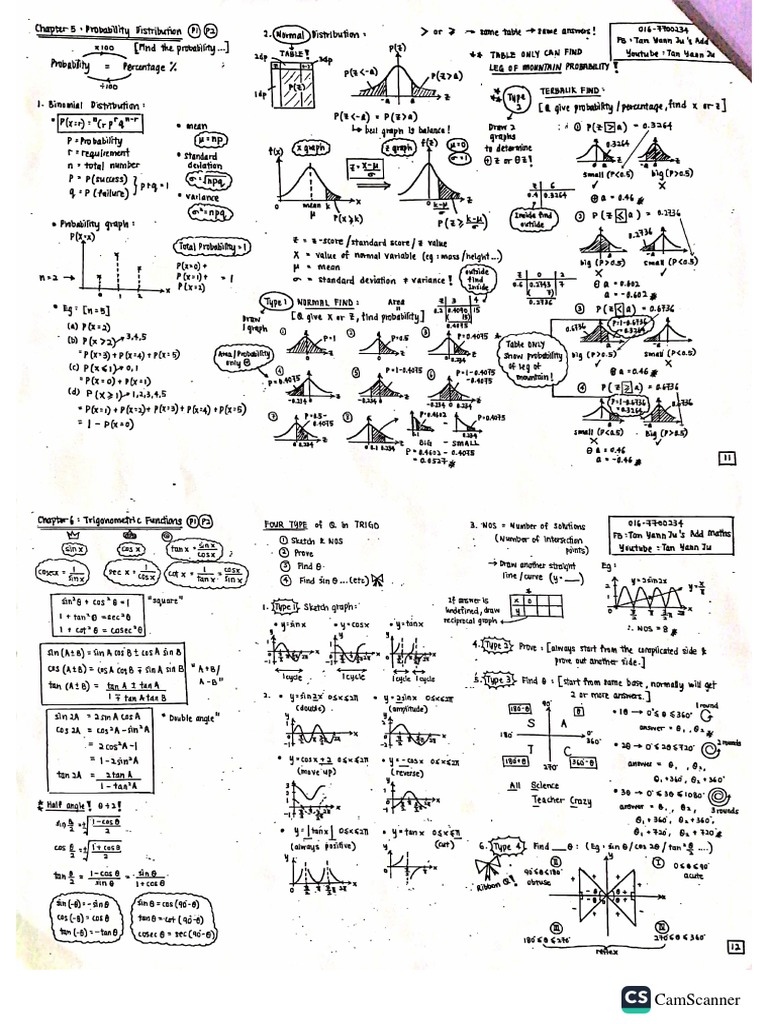 Chapter 5 : Probability Distribution P1 P2
×100 [Find the probability...]
Probability = Percentage %
÷100
1. Binomial Distribution :
• P(X=r) = ⁿCr pʳ qⁿ⁻ʳ
P = Probability
r = requirement
n = total number
p = P(success)
q = P(failure) } p+q = 1
• mean
μ = np
• standard deviation
σ = √npq
• variance
σ² = npq
• Probability graph :
P(X=x)
Total Probability = 1
n=2 →
0 1 2 x
P(X=0) +
P(X=1) + = 1
P(X=2)
• Eg : [n=5]
(a) P(X=2)
(b) P(X>2) → 3,4,5
= P(X=3) + P(X=4) + P(X=5)
(c) P(X≤1) → 0,1
= P(X=0) + P(X=1)
(d) P(X≥1) → 1,2,3,4,5
= P(X=1) + P(X=2) + P(X=3) + P(X=4) + P(X=5)
= 1 - P(X=0)
2. Normal Distribution :
TABLE!
2dp 3dp
1dp P(Z)
P(z)
P(Z<-a) P(Z>a)
-a a z
P(Z<-a) = P(Z>a)
↳ bell graph is balance!
f(x) x graph
z = x-μ / σ
z graph f(z) μ=0 σ=1
mean k x
μ P(X≥k)
0 k-μ/σ z
P(Z≥ k-μ/σ)
Z = z-score/standard score/z value
X = value of normal variable (eg: mass/height...)
μ = mean
σ = standard deviation ≠ variance!
> or ≥ → same table → same answers!
** TABLE ONLY CAN FIND
LEG OF MOUNTAIN PROBABILITY!
016-7700234
FB: Tan Yann Ju's Add
Youtube: Tan Yann Ju
Type 1 NORMAL FIND :
[Q give X or Z, find probability]
Draw 1 graph
Area/Probability only ⊕
outside find inside
Area
Z 3 4
0.2 0.4090 15
(15)
0.4075
① P=1
② P=0.5
③ P=0.4075
④ P=0.4075
-0.234 0
⑤ P=1-0.4075
⑥ P=1-0.4075-0.4075
-0.234 0.234
⑦ P=0.5-0.4075
0 0.234
⑧ 0.1 0.234
P=0.4602 P=0.4075
BIG - SMALL
P = 0.4602 - 0.4075
= 0.0527
Type 2 TERBALIK FIND :
[Q give probability/percentage, find x or z]
Draw 2 graphs to determine ⊕z or ⊖z!
① P(Z > a) = 0.3264
0.3264
small (P<0.5) big (P>0.5)
Z 6
0.4 0.3264
⊕ a = 0.46
Inside find outside
② P(Z < a) = 0.2736
0.2736
big (P>0.5) small (P<0.5)
Z 0 2
0.6 0.2743 7
(7)
0.2736
⊖ a = 0.602
a = -0.602
③ P(Z < a) = 0.6736
P=1-0.6736
=0.3264
0.6736
big (P>0.5) small (P<0.5)
⊕ a = 0.46
Table only show probability of leg of mountain!
④ P(Z ≥ a) = 0.6736
P=1-0.6736
=0.3264
small (P<0.5) big (P>0.5)
⊖ a = 0.46
a = -0.46
11
Chapter 6 : Trigonometric Functions P1 P2
sin x cos x tan x = sin x / cos x
cosec x = 1/sin x sec x = 1/cos x cot x = 1/tan x = cos x/sin x
sin²θ + cos²θ = 1
1 + tan²θ = sec²θ
1 + cot²θ = cosec²θ
"square"
sin (A±B) = sin A cos B ± cos A sin B
cos (A±B) = cos A cos B ∓ sin A sin B
tan (A±B) = tan A ± tan B / 1 ∓ tan A tan B
"A+B/A-B"
sin 2A = 2 sin A cos A
cos 2A = cos²A - sin²A
= 2cos²A - 1
= 1 - 2sin²A
tan 2A = 2 tan A / 1 - tan²A
"Double angle"
* Half angle! θ÷2!
sin θ/2 = ±√(1-cos θ / 2)
cos θ/2 = ±√(1+cos θ / 2)
tan θ/2 = 1-cos θ / sin θ = sin θ / 1+cos θ
sin (-θ) = -sin θ
cos (-θ) = cos θ
tan (-θ) = -tan θ
sin θ = cos (90-θ)
tan θ = cot (90-θ)
cosec θ = sec (90-θ)
FOUR TYPE of Q. in TRIGO
① Sketch & NOS
② Prove
③ Find θ
④ Find sin θ ...(etc)
1. Type 1 Sketch graph :
• y = sin x • y = cos x • y = tan x
1 cycle 1 cycle 1 cycle
2. • y = sin 2x 0≤x≤2π
(double)
• y = 2sin x 0≤x≤2π
(amplitude)
• y = cos x + 2 0≤x≤2π
(move up)
• y = -cos x 0≤x≤2π
(reverse)
• y = |tan x| 0≤x≤2π
(always positive)
• y = tan x 0≤x≤π
(cut)
3. NOS = Number of solutions
(Number of intersection points)
→ Draw another straight line/curve (y = __)
If answer is undefined, draw reciprocal graph
x 0
y
016-7700234
FB: Tan Yann Ju's Add maths
Youtube: Tan Yann Ju
Eg :
y = 2sin2x
∴ NOS = 8
4. Type 2 Prove : [always start from the complicated side & prove out another side.]
5. Type 3 Find θ : [start from same base, normally will get 2 or more answers.]
90°
180-θ θ
S A
180° 0° 360°
T C
180+θ 360-θ
270°
All Science
Teacher Crazy
• 1θ → 0°≤θ≤360° 1 round
answer = θ₁, θ₂
• 2θ → 0°≤2θ≤720° 2 rounds
answer = θ₁, θ₂,
θ₁+360°, θ₂+360°
• 3θ → 0°≤3θ≤1080° 3 rounds
answer = θ₁, θ₂,
θ₁+360°, θ₂+360°,
θ₁+720°, θ₂+720°
6. Type 4 Find __ θ : (Eg: sin θ/cos 2θ/tan θ/2 ....)
Ribbon Q!
II
90°≤θ≤180°
obtuse
I 0≤θ≤90°
acute
III
180°≤θ≤270°
IV
270°≤θ≤360°
reflex
12
CS CamScanner